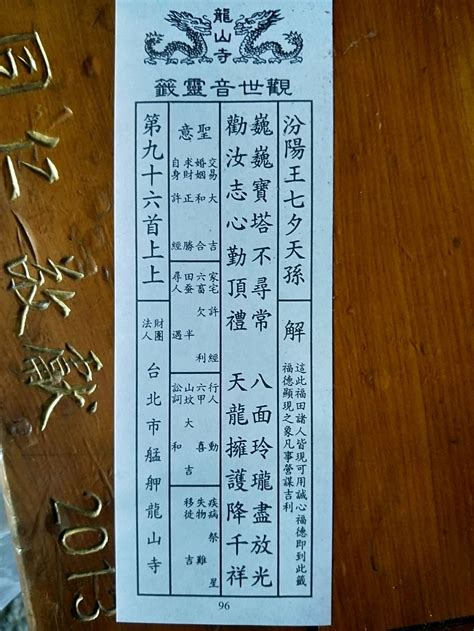 龍山寺
觀世音靈籤
汾陽王七夕天孫
解
這此福田諸人皆現可用誠心福德即到此籤
福德顯現之象凡事營謀吉利
巍巍寶塔不尋常 八面玲瓏盡放光
勸汝志心勤頂禮 天龍擁護降千祥
聖意
交易大吉
婚姻和合
求財正勝
自身許經
家宅許經
六畜欠利
田蠶半
尋人遇
行人動
六甲喜
山墳大吉
訟詞和
疾病祭星
失物難
移徙吉
第九十六首上上
財團
法人
台北市艋舺龍山寺
96
敬獻
2013